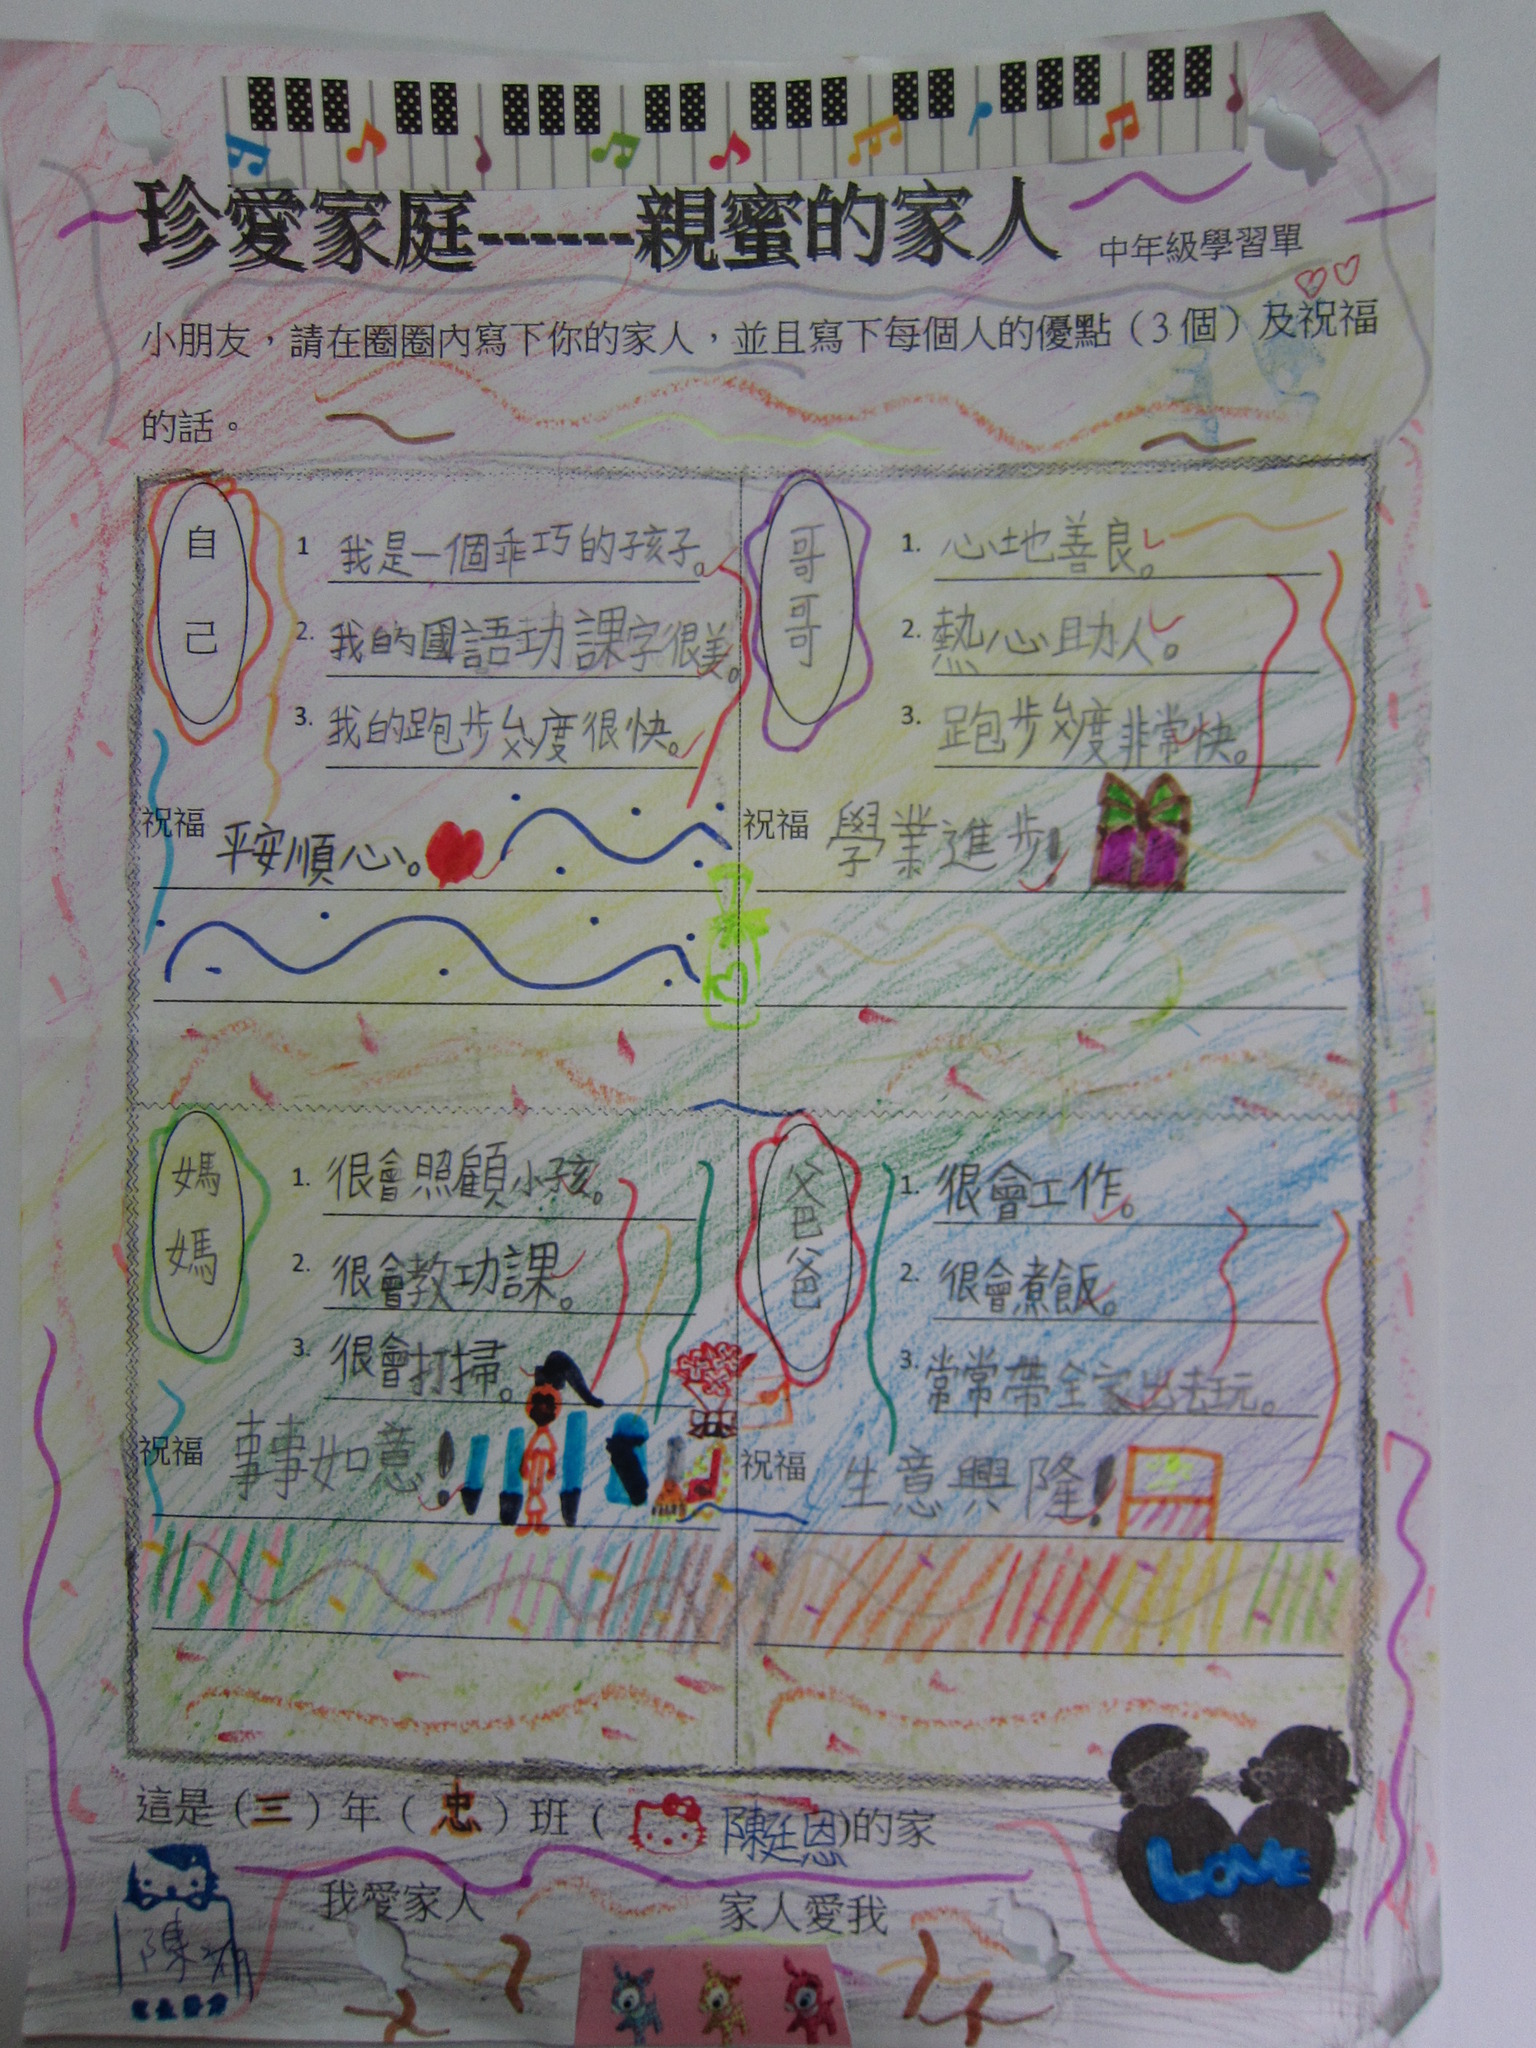 珍愛家庭------親蜜的家人 中年級學習單
小朋友，請在圈圈內寫下你的家人，並且寫下每個人的優點（3個）及祝福
的話。
自己
1 我是一個乖巧的孩子。
2. 我的國語功課字很美。
3. 我的跑步速度很快。
祝福 平安順心。
哥哥
1. 心地善良。
2. 熱心助人。
3. 跑步速度非常快。
祝福 學業進步!
媽媽
1. 很會照顧小孩。
2. 很會教功課。
3. 很會打掃。
祝福 事事如意!
爸爸
1. 很會工作。
2. 很會煮飯。
3. 常常帶全家出去玩。
祝福 生意興隆!
這是（三）年（忠）班（陳廷恩)的家
我愛家人 家人愛我
LOVE
陳